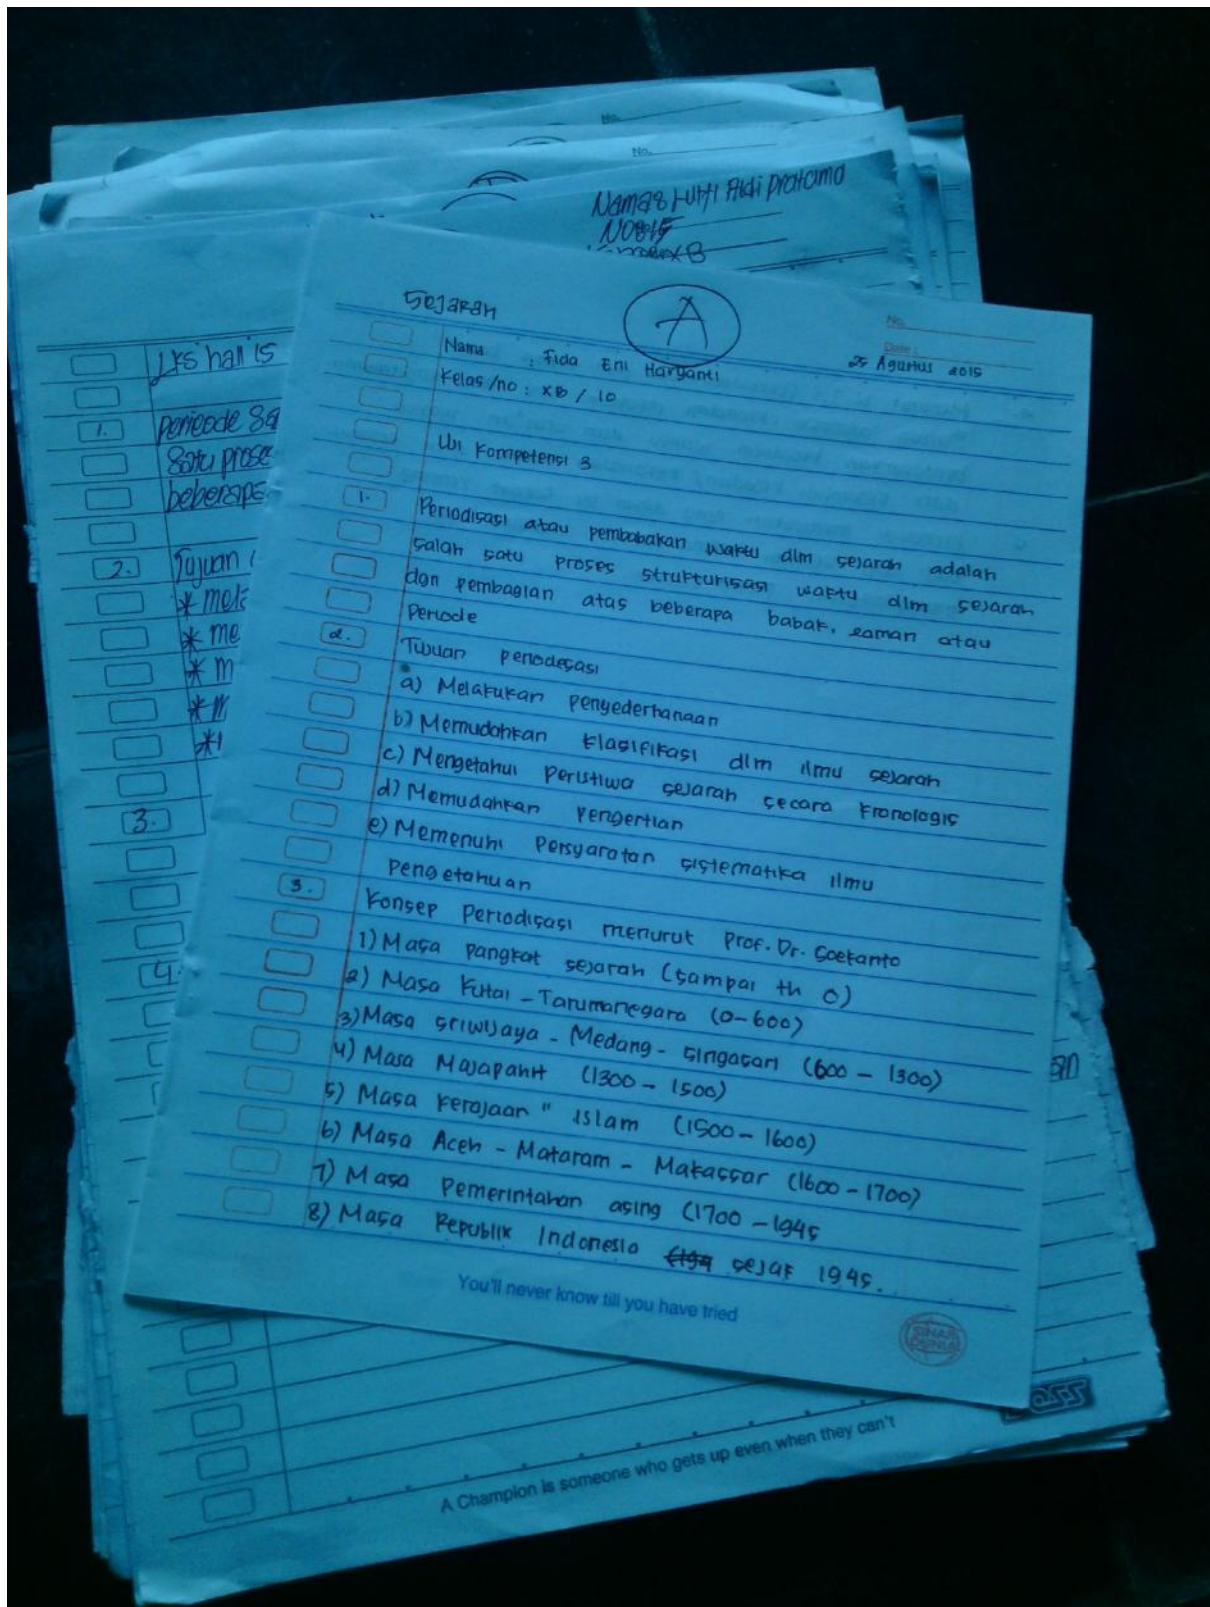 No.
No.
Nama : Lutfi Aldi Pratama
No : 15
X B
LKS hal 15
1.
Satu proses
beberapa
2.
Tujuan
*
*
*
*
*
3.
4.
Sejarah
A
No.
Date :
25 Agustus 2015
Nama : Fida Eni Haryanti
Kelas/no : XB / 10
Uji Kompetensi 3
1. Periodisasi atau pembabakan waktu dlm sejarah adalah
salah satu proses strukturisasi waktu dlm sejarah
dgn pembagian atas beberapa babak, zaman atau
Periode
2. Tujuan periodesasi
a) Melakukan penyederhanaan
b) Memudahkan klasifikasi dlm ilmu sejarah
c) Mengetahui peristiwa sejarah secara kronologis
d) Memudahkan Pengertian
e) Memenuhi Persyaratan sistematika ilmu
Pengetahuan
3. Konsep Periodisasi menurut Prof. Dr. Soekanto
1) Masa pangkat sejarah (sampai th 0)
2) Masa Kutai - Tarumanegara (0-600)
3) Masa sriwijaya - Medang - singasari (600 - 1300)
4) Masa Majapahit (1300 - 1500)
5) Masa kerajaan " Islam (1500 - 1600)
6) Masa Aceh - Mataram - Makassar (1600 - 1700)
7) Masa Pemerintahan asing (1700 - 1945
8) Masa Republik Indonesia sejak 1945.
You'll never know till you have tried
SINAR
DUNIA
BOSS
A Champion is someone who gets up even when they can't